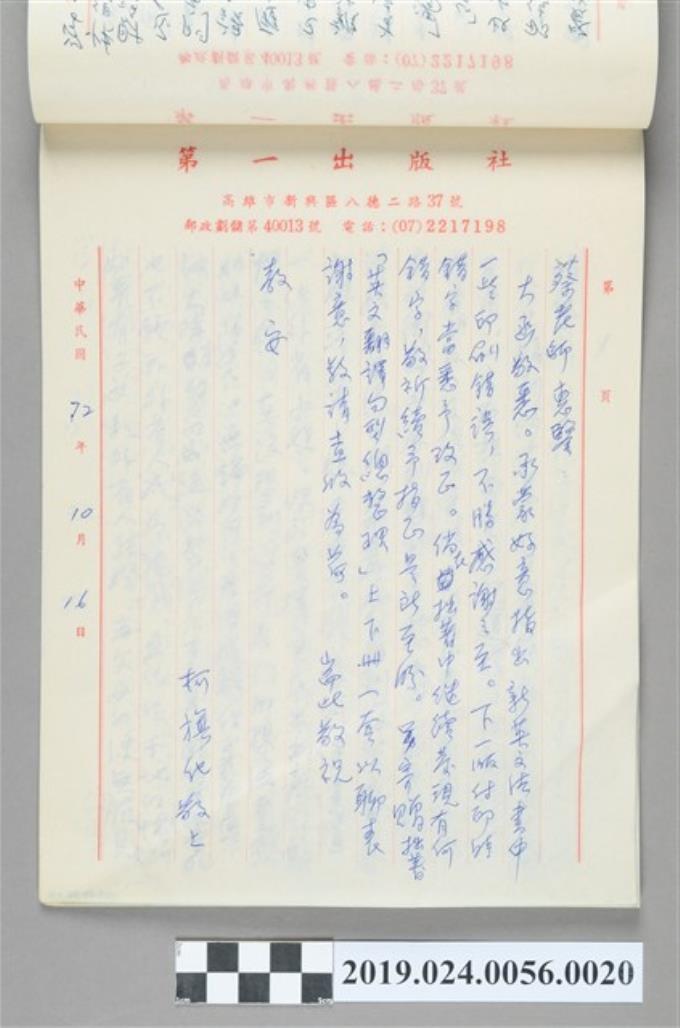 郵政劃儲第40013號 電話：(07)2217198
第一出版社
高雄市新興區八德二路37號
郵政劃儲第40013號 電話：(07)2217198
第 頁
蔡老師惠鑒：
大函敬悉。承蒙好意指出新英文法書中
一些印刷錯誤，不勝感謝之至。下一版付印時
錯字當悉予改正。倘在拙著中繼續發現有何
錯字，敬祈續予指正是所至盼。另寄贈拙著
「英文翻譯句型總整理」上下冊一套以聊表
謝意，敬請查收為荷。 耑此敬祝
教安
柯旗化敬上
中華民國 72 年 10 月 16 日
2019.024.0056.0020